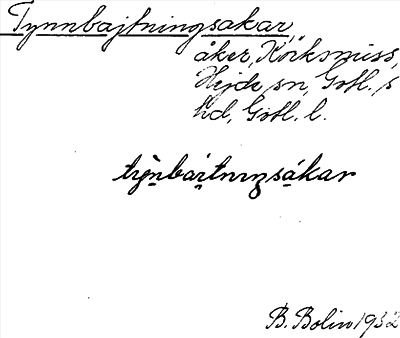 Tynnbajtningsakar,
åker, Körksmiss,
Hejde sn, Gotl. s
hd, Gotl. l.
tỳnbaitnɪŋsákar
B. Bolin 1932